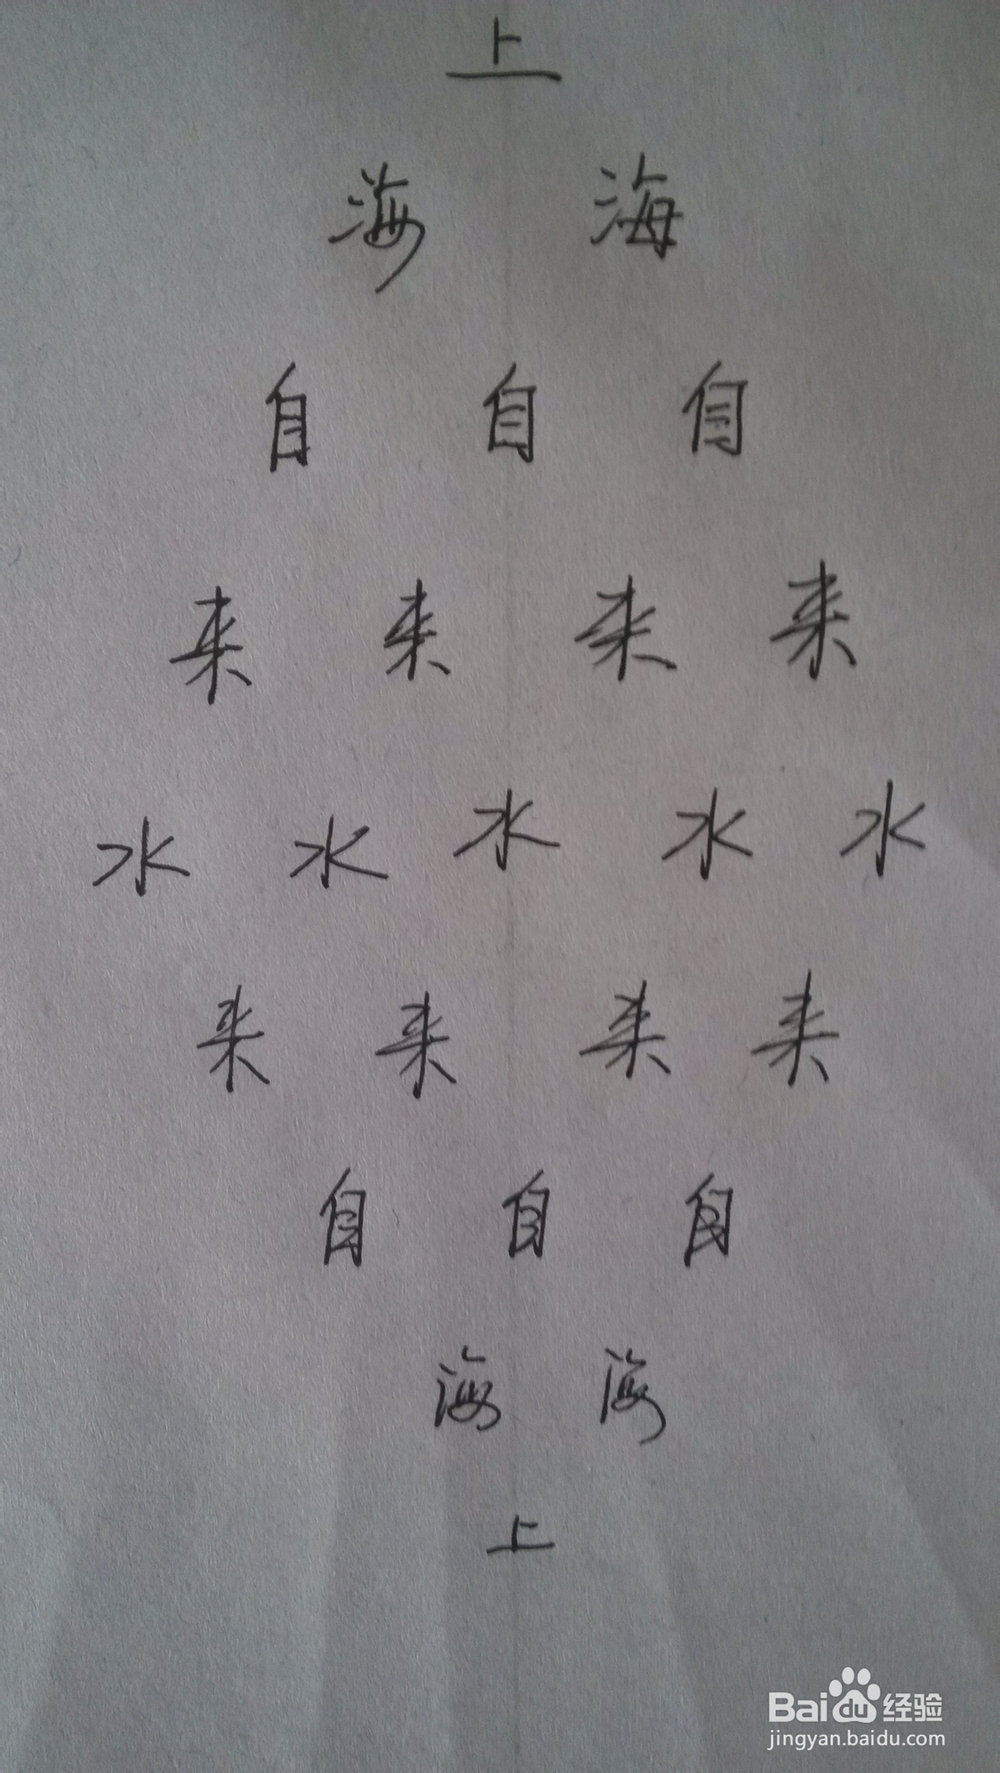 上
海 海
自 自 自
来 来 来 来
水 水 水 水 水
来 来 来 来
自 自 自
海 海
上
Baidu 经验
jingyan.baidu.com